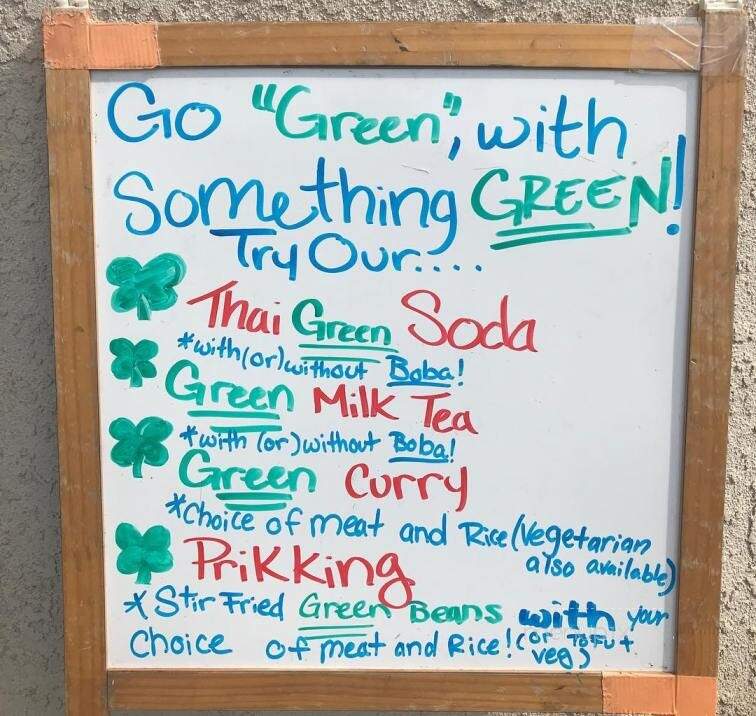 Go "Green", with
Something GREEN!
Try Our....
Thai Green Soda
*with (or) without Boba!
Green Milk Tea
*with (or) without Boba!
Green Curry
*Choice of meat and Rice (Vegetarian
also available)
PriKKing
*Stir Fried Green Beans with your
Choice of meat and Rice! (or Tofu +
veg)